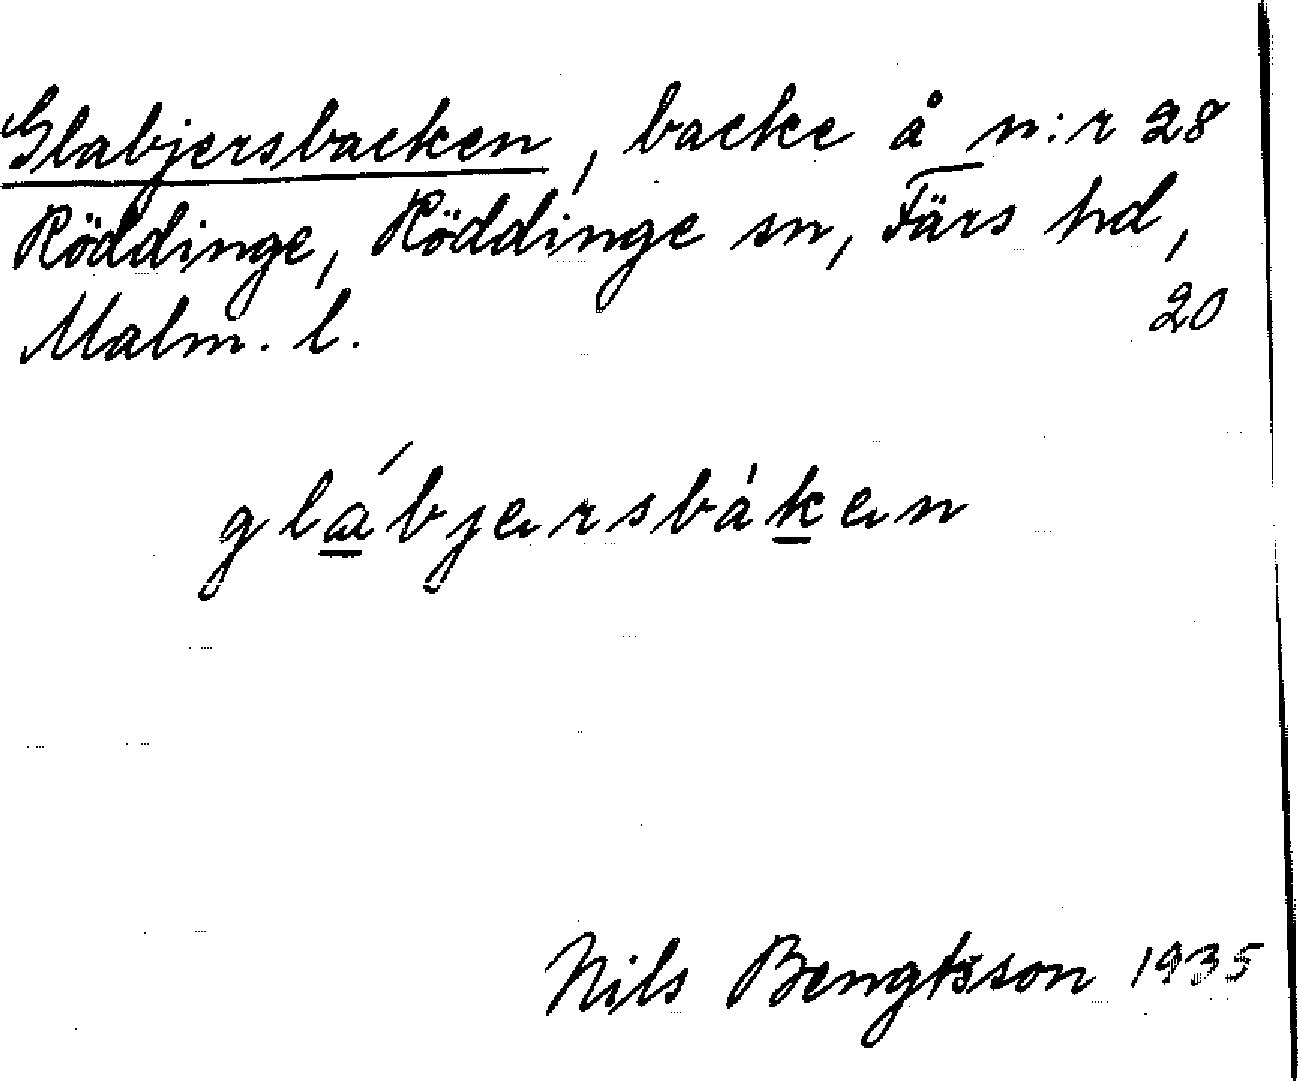 Glabjersbacken, backe å n:r 28
Röddinge, Röddinge sn, Färs hd,
Malm. l. 20
glábjersbàken
Nils Bengtsson 1935